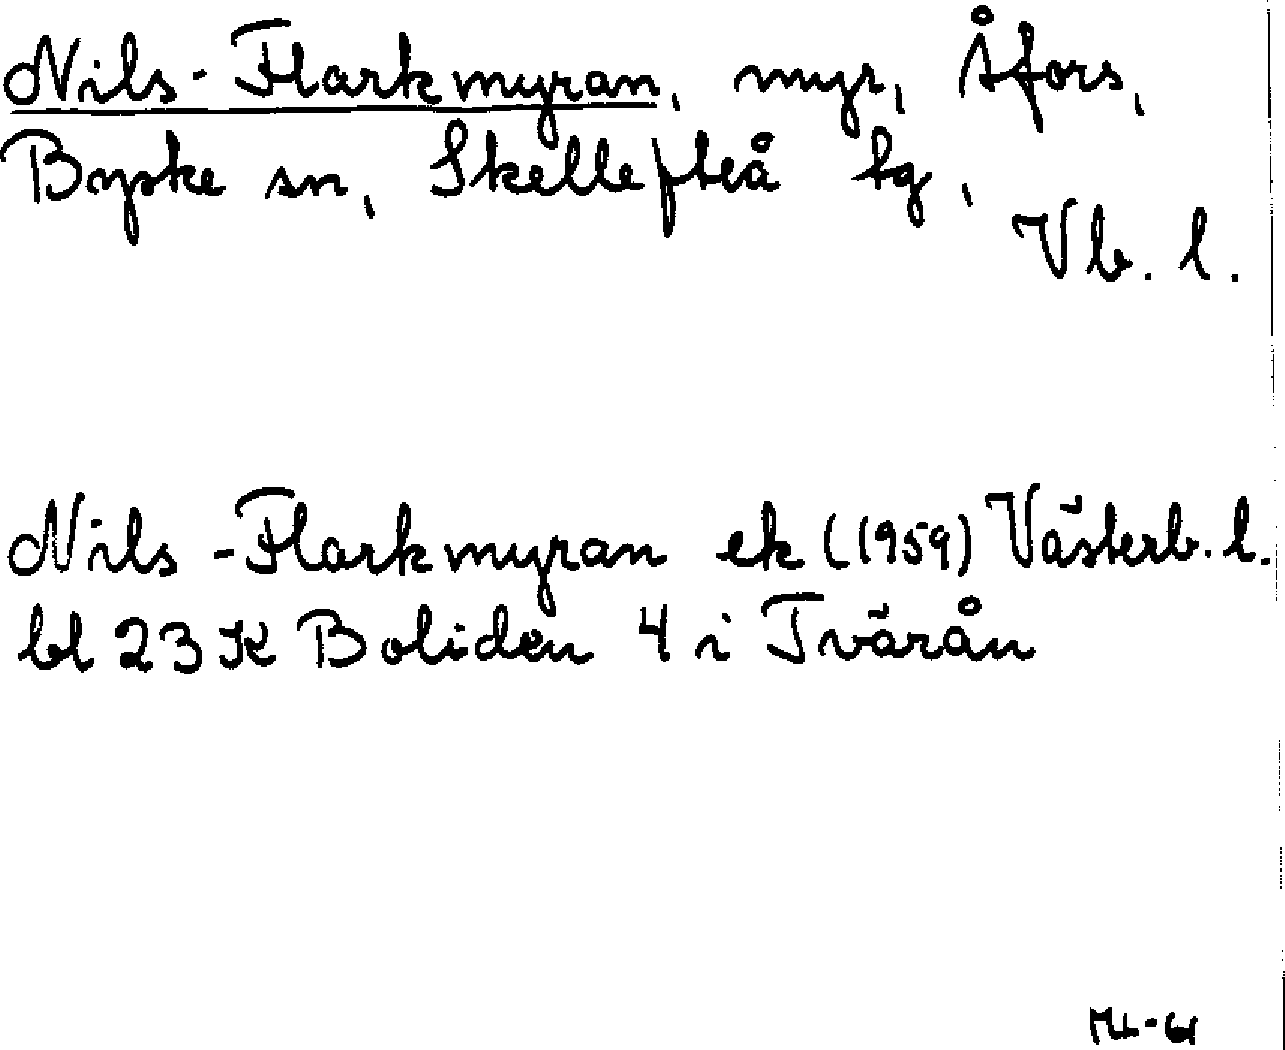 Nils-Flarkmyran, myr, Åfors,
Byske sn, Skellefteå tg,
Vb. l.
Nils-Flarkmyran ek (1959) Västerb. l.
bl 23 K Boliden 4 i Tvärån
ML-61